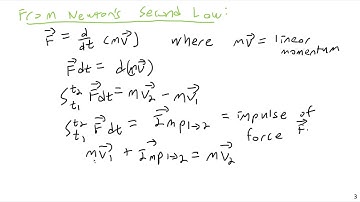 From Newton's Second Law:
F⃗ = d/dt (mV⃗) where mV⃗ = linear momentum
F⃗dt = d(mV⃗)
∫t1 t2 F⃗dt = mV⃗2 - mV⃗1
∫t1 t2 F⃗dt = I⃗mp1→2 = impulse of force F⃗.
mV⃗1 + I⃗mp1→2 = mV⃗2
3